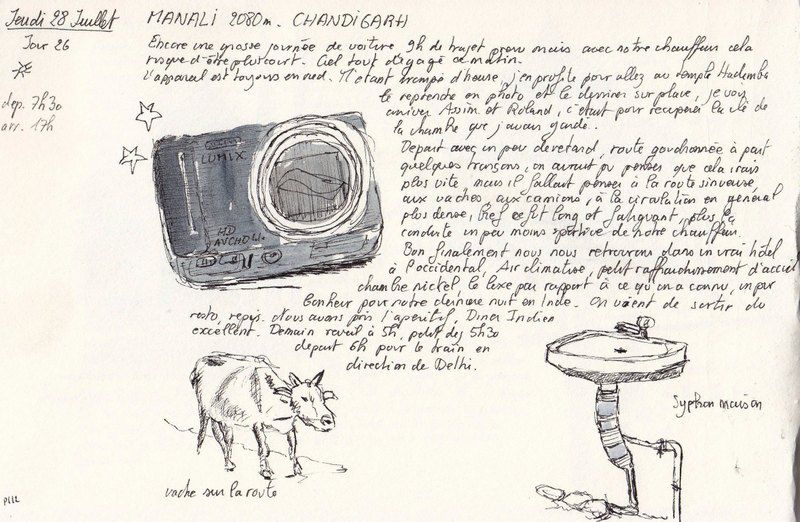 Jeudi 28 Juillet
MANALI 2080m. CHANDIGARH
Jour 26
dep. 7h30
arr. 17h
Encore une grosse journée de voiture 9h de trajet prevu mais avec notre chauffeur cela
risque d'être plus court. Ciel tout dégagé ce matin.
L'appareil est toujours en rad. M'étant trompé d'heure, j'en profite pour allez au temple Hadimba
le reprendre en photo et le dessiner sur place, je vois
arriver Assim et Roland, c'était pour recuperer la clé de
la chambre que j'avais gardé.
Depart avec un peu de retard, route goudronnée à part
quelques tronçons, on aurait pu penser que cela irais
plus vite, mais il fallait penser à la route sinueuse,
aux vaches, aux camions, à la circulation en général
plus dense, bref ce fut long et fatiguant, plus la
conduite un peu moins sportive de notre chauffeur.
Bon finalement nous nous retrouvons dans un vrai hôtel
à l'occidental, Air climatisé, petit raffraichissement d'accueil
chambre nickel, le luxe par rapport à ce qu'on a connu, un pur
bonheur pour notre dernière nuit en Inde. On vient de sortir du
resto, repus. Nous avons pris l'aperitif, Diner Indien
excellent. Demain reveil à 5h, petit dej 5h30
depart 6h pour le train en
direction de Delhi.
LUMIX
HD
AVCHD
vache sur la route
Syphon maison